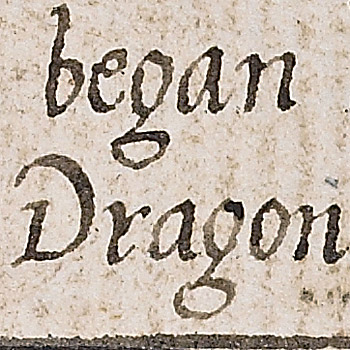 began
Dragon